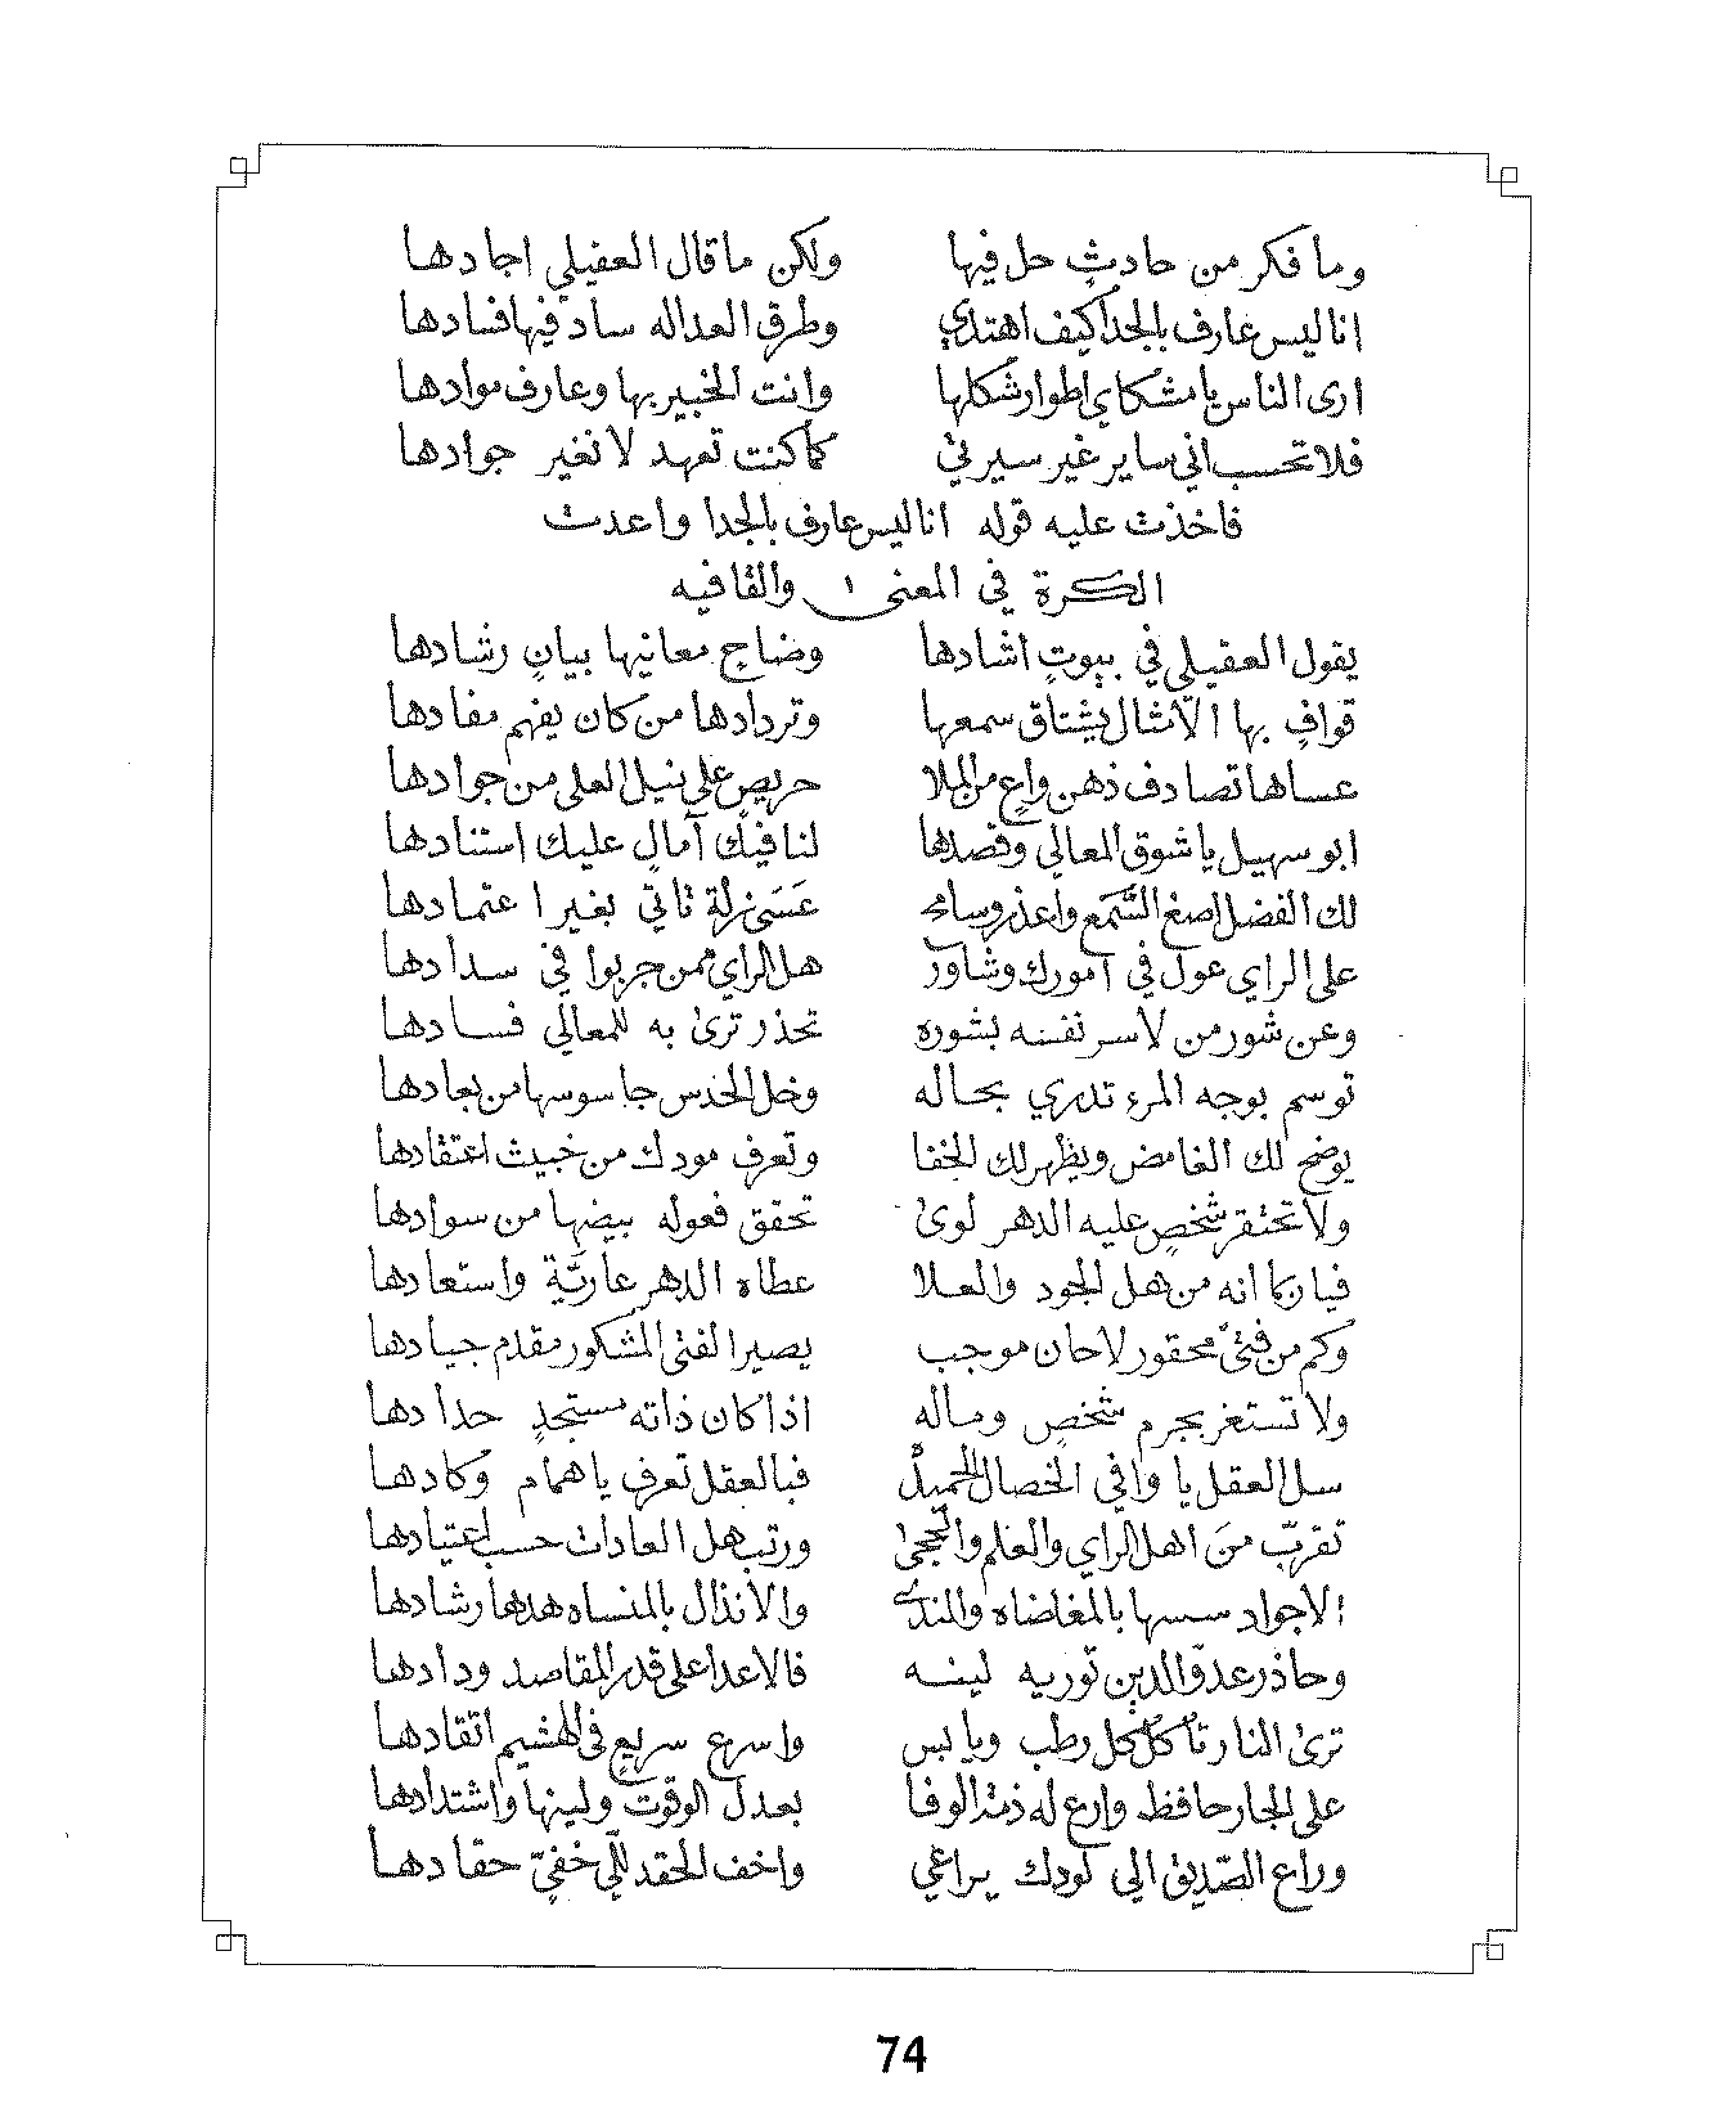 وما فكر من حادثٍ حل فيها ولكن ما قال العقيلي اجادها
انا ليس عارف بالجدا كيف اهتدي وطرق العداله ساد فيها فسادها
ارى الناس يا مشكاي اطوار شكلها وانت الخبير بها وعارف موادها
فلا تحسب اني ساير غير سيرتي كما كنت تعهد لا تغير جوادها
فاخذت عليه قوله انا ليس عارف بالجدا واعدت
الكرة في المعنى والقافيه
يقول العقيلي في بيوتٍ اشادها وضاحٍ معانيها بيانٍ رشادها
قوافٍ بها الأمثال يشتاق سمعها وتردادها من كان يفهم مفادها
عساها تصادف ذهن واعٍ من الملا حريصٍ على نيل العلى من جوادها
ابو سهيل يا شوق المعالي وقصدها لنا فيك آمالٍ عليك استنادها
لك الفضل اصغ السَّمع واعذر وسامح عَسَى زلة تاتي بغير اعتمادها
على الراي عول في امورك وشاور هل الراي ممن جربوا في سدادها
وعن شور من لا سر نفسه بشوره تحذر ترى به للمعالي فسادها
توسم بوجه المرء تدري بحاله وخل الحدس جاسوسها من بعادها
يوضح لك الغامض ويظهر لك الخفا وتعرف مودك من خبيث اعتقادها
ولا تحتقر شخصٍ عليه الدهر لوى تحقق فعوله بيضها من سوادها
فيا ربما انه من هل الجود والعلا عطاه الدهر عاريَّة واستعادها
وكم من فتىً محقور لا حان موجب يصير الفتى المشكور مقدم جيادها
ولا تستغر بجرم شخصٍ وماله اذا كان ذاته مستجدٍ حدادها
سل العقل يا وافي الخصال الحميدْ فبالعقل تعرف يا همام وكادها
تقرّب منَ اهل الراي والعلم والحجى ورتب هل العادات حسب اعتيادها
الاجواد سسها بالمغاضاه والندى والانذال بالمنساه هدها رشادها
وحاذر عدوّ الدين توريه لينه فالاعدا على قدر المقاصد ودادها
ترى النار تاكل كل رطب ويابس واسرع سريعٍ في الهشيم اتقادها
على الجار حافظ وارع له ذمة الوفا بعدل الوقوت ولينها واشتدادها
وراع الصّديق الي لودك يراعي واخف الحقد للّي خفيٍّ حقادها
74